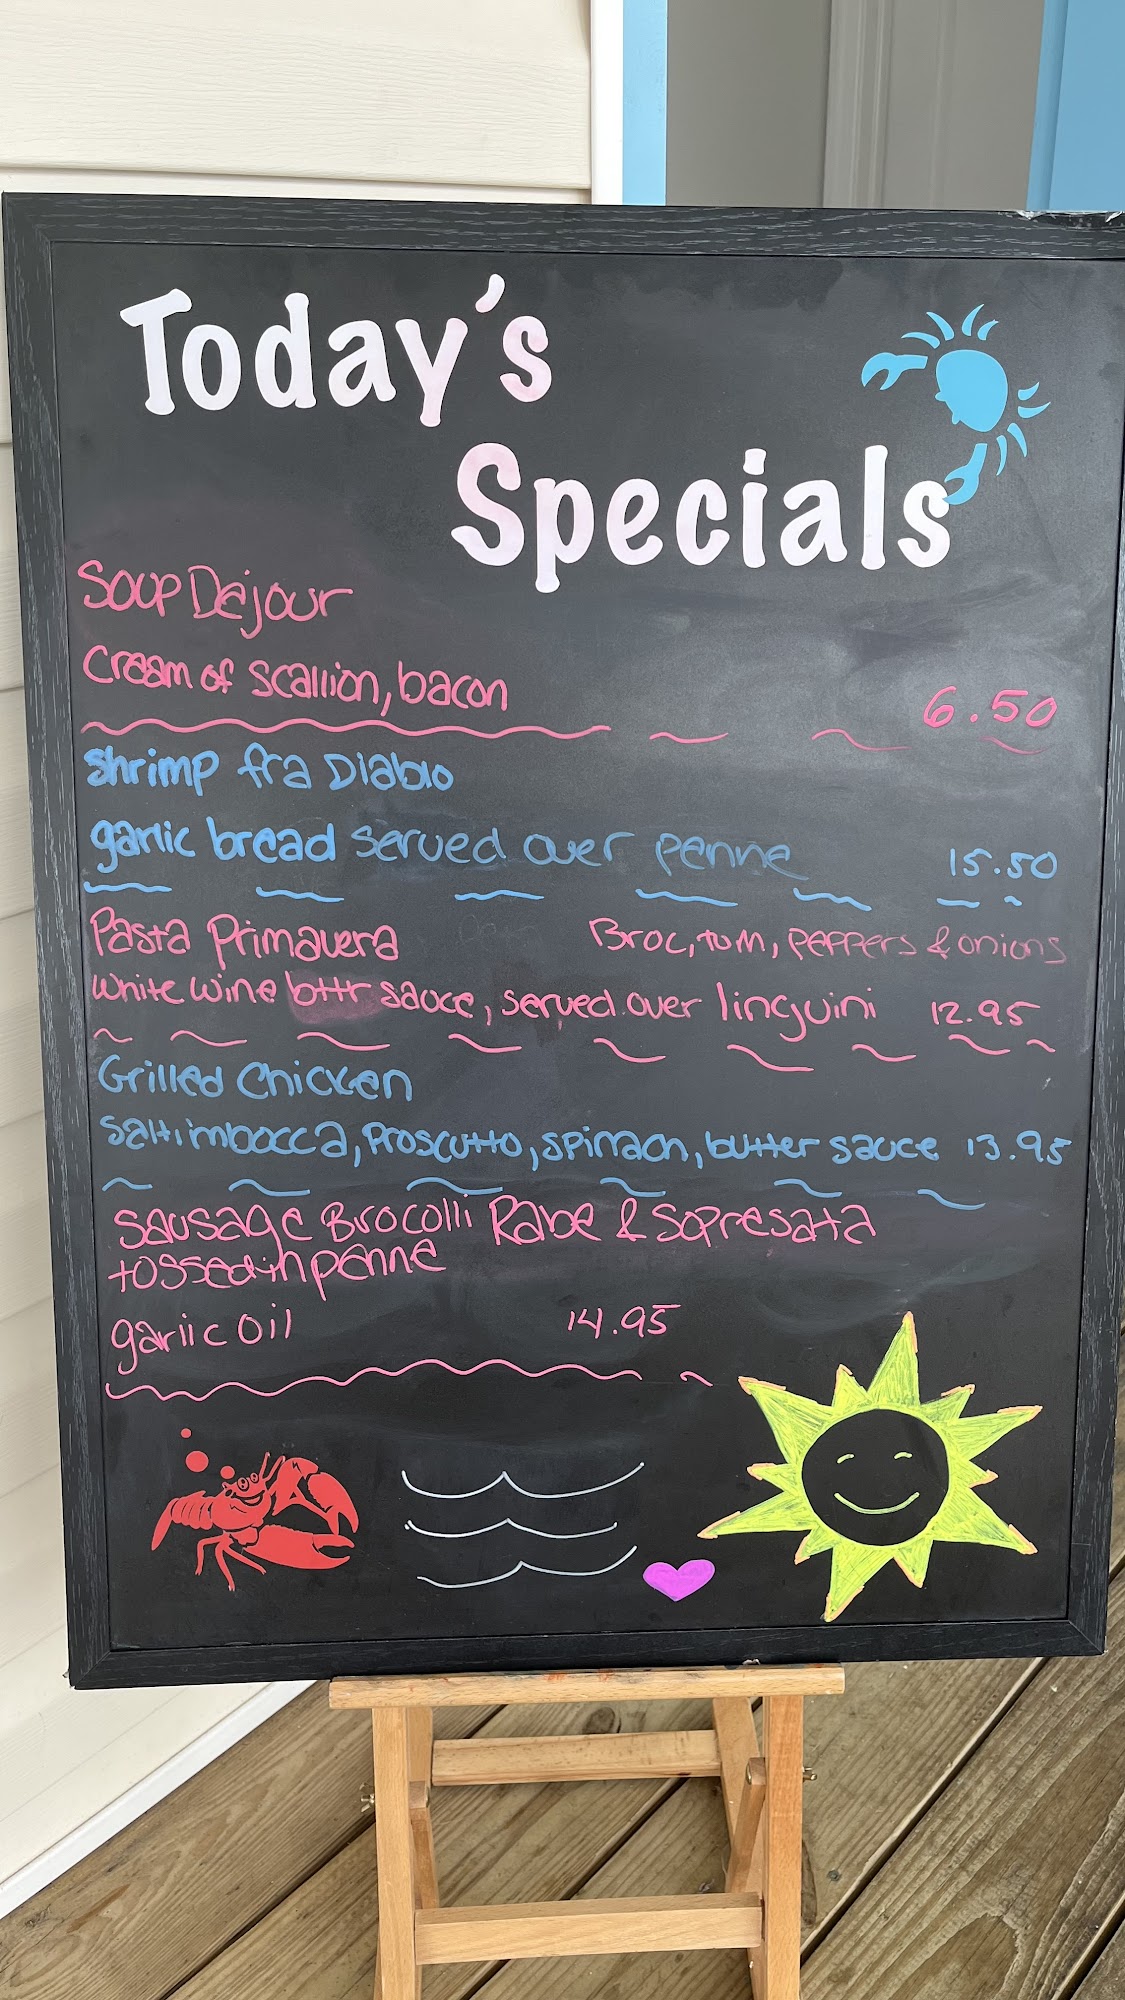 Today's
Specials
Soup Dejour
Cream of scallion, bacon 6.50
Shrimp fra Diablo
garlic bread served over penne 15.50
Pasta Primavera Broc, tom, peppers & onions
White wine bttr sauce, served over linguini 12.95
Grilled Chicken
Saltimbocca, Proscutto, spinach, butter sauce 13.95
Sausage Brocolli Rabe & Sopresata
tossed in penne
garlic oil 14.95